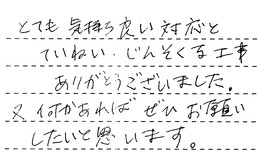 とても気持ち良い対応と
ていねい、じんそくな工事
ありがとうございました。
又何かあれば ぜひ お願い
したいと思います。